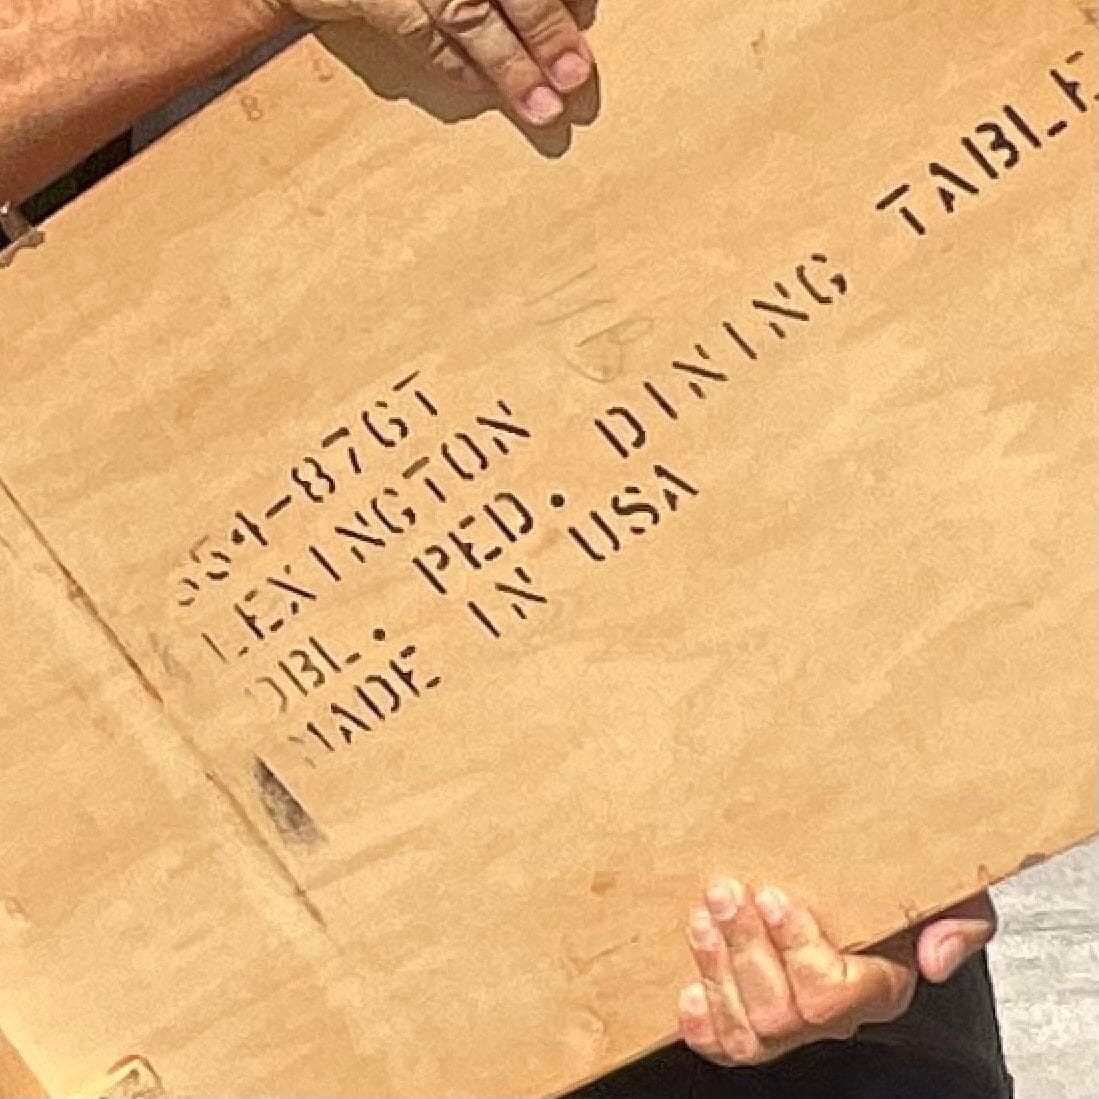 LEXINGTON
DBL. PED. DINING TABLE
MADE IN USA